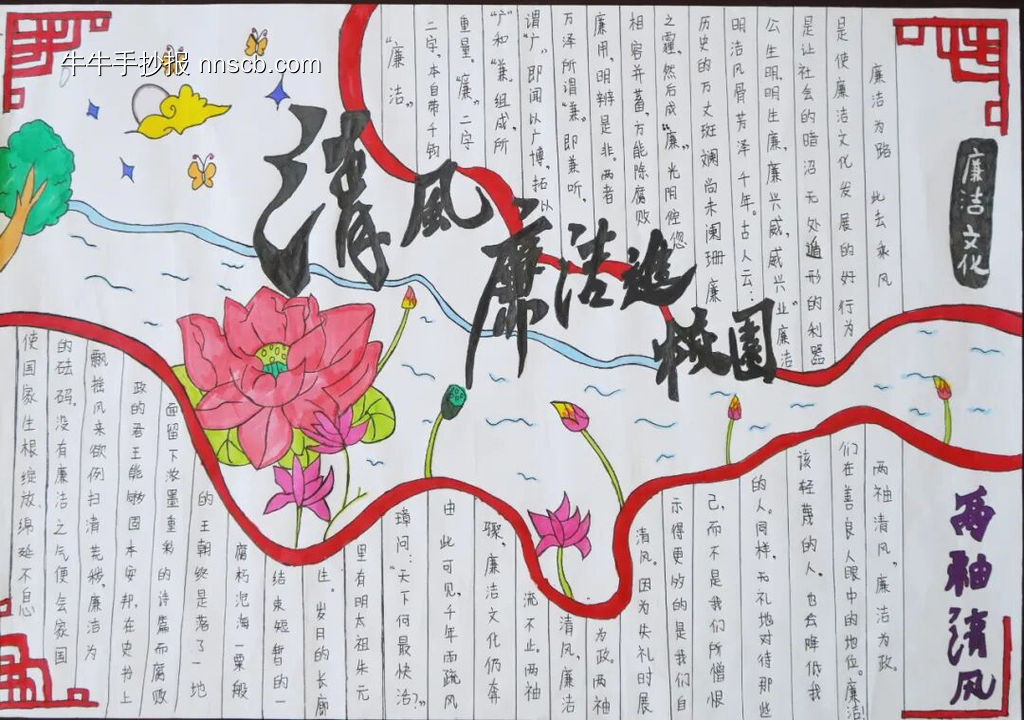 牛牛手抄报 nnscb.com
清風
廉洁進
校園
廉洁文化
廉洁为路 此去乘风
是使廉洁文化发展的好行为
是让社会的暗沼无处遁形的利器
公生明，明生廉，廉兴威，威兴业”廉洁
明洁风骨芳泽千年。古人云：
历史的万丈斑斓尚未阑珊廉
之霾，然后成“廉”光阴倥偬
相容并蓄，方能除腐败
廉用，明辨是非。两者
万泽所谓“兼”。即兼听，
谓“广”，即闻以广博，拓以
“广”和“兼”组成，所
重量，“廉”二字
二字，本自带千钧
“廉洁”
两袖清风
两袖清风，廉洁为政。
们在善良人眼中的地位。廉洁
该轻蔑的人，也会降低我
的人。同样，无礼地对待那些
己，而不是我们所憎恨
示得更多的是我们自
清风。因为失礼时展
为政。两袖
清风，廉洁
流不止。两袖
骤，廉洁文化仍奔
由此可见，千年雨疏风
璋问：“天下何最快活？”
里有明太祖朱元
生。岁月的长廊
结束短暂的一
腐朽沧海一粟般
的王朝终是落了一地
面留下浓墨重彩的诗篇而腐败
政的君王能够固本安邦，在史书上
飘摇风来欲例扫清芜秽，廉洁为
的砝码，没有廉洁之气便会家国
使国家生根绽放，绵延不息